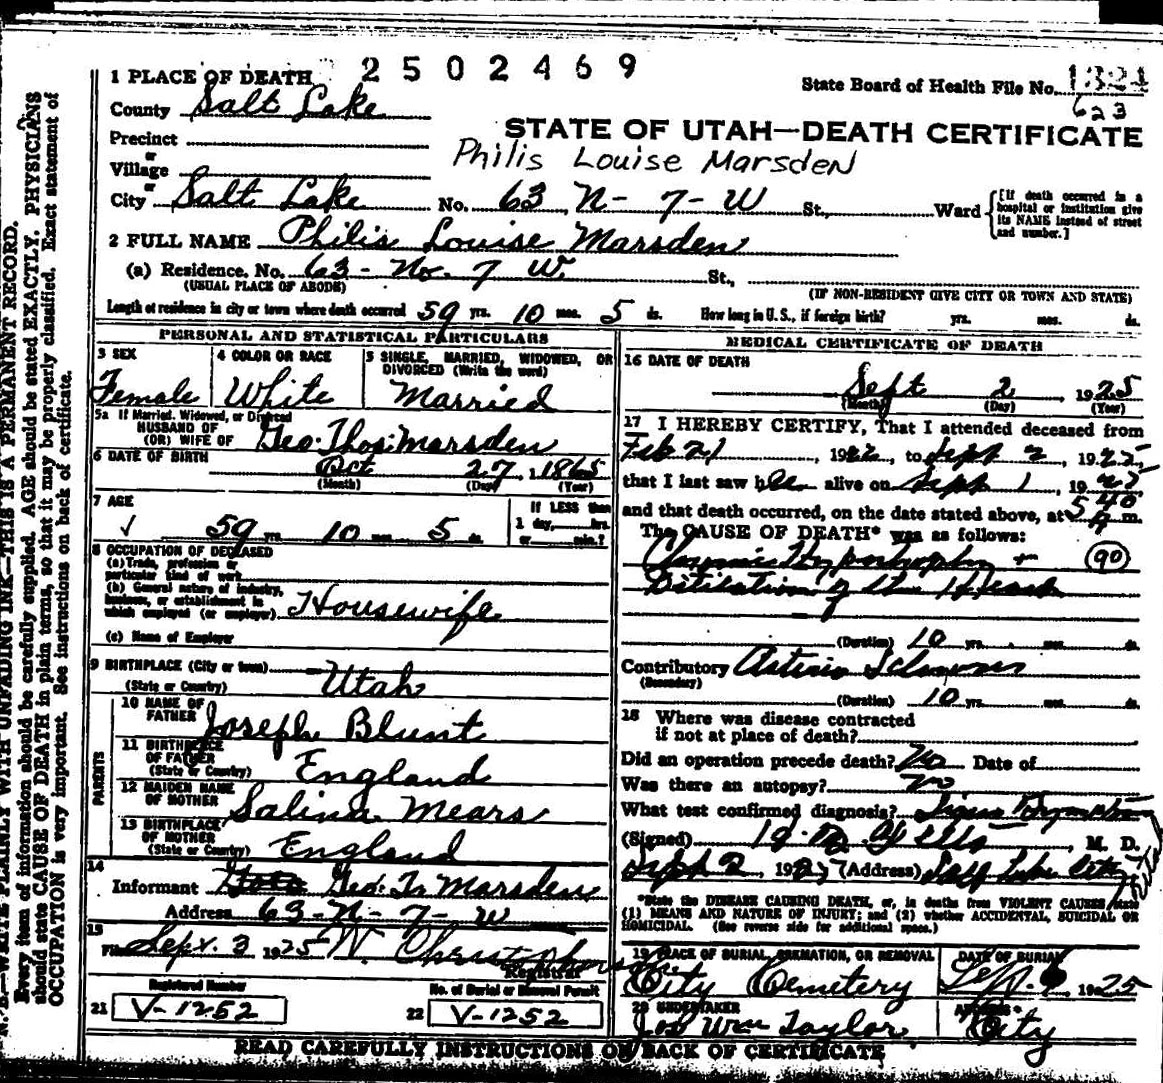 2502469
State Board of Health File No. 1324
623
1 PLACE OF DEATH
County Salt Lake
STATE OF UTAH—DEATH CERTIFICATE
Precinct
or
Village
Philis Louise Marsden
or
City Salt Lake No. 63 N - 7 - W St., Ward
[If death occurred in a hospital or institution give its NAME instead of street and number.]
2 FULL NAME Philis Louise Marsden
(a) Residence. No. 63 - No. 7 W. St.,
(USUAL PLACE OF ABODE) (IF NON-RESIDENT GIVE CITY OR TOWN AND STATE)
Length of residence in city or town where death occurred 59 yrs. 10 mos. 5 ds. How long in U.S., if foreign birth? yrs. mos. ds.
PERSONAL AND STATISTICAL PARTICULARS
3 SEX 4 COLOR OR RACE 5 SINGLE, MARRIED, WIDOWED, OR DIVORCED (Write the word)
Female White Married
5a If Married, Widowed, or Divorced
HUSBAND OF
(OR) WIFE OF Geo. Thos. Marsden
6 DATE OF BIRTH Oct 27, 1865
(Month) (Day) (Year)
7 AGE
59 yrs. 10 mos. 5 ds.
If LESS than 1 day, hrs. or min.?
8 OCCUPATION OF DECEASED
(a) Trade, profession or particular kind of work
(b) General nature of industry, business, or establishment in which employed (or employer) Housewife
(c) Name of Employer
9 BIRTHPLACE (City or town)
(State or Country) Utah
PARENTS
10 NAME OF FATHER Joseph Blunt
11 BIRTHPLACE OF FATHER (State or Country) England
12 MAIDEN NAME OF MOTHER Salina Mears
13 BIRTHPLACE OF MOTHER (State or Country) England
14
Informant Geo. T. Marsden
Address 63 - N - 7 - W
15
Filed Sept. 3 1925 N. Christopherson
Registrar
Registered Number No. of Burial or Removal Permit
21 V-1252 22 V-1252
MEDICAL CERTIFICATE OF DEATH
16 DATE OF DEATH
Sept 2 1925
(Month) (Day) (Year)
17 I HEREBY CERTIFY, That I attended deceased from
Feb 21, 1922, to Sept 2, 1925,
that I last saw her alive on Sept 1, 1925
and that death occurred, on the date stated above, at 5 40 A m.
The CAUSE OF DEATH* was as follows:
Chronic Hypertrophy + 90
Dilitation of the Heart
(Duration) 10 yrs. mos. ds.
Contributory Arterio Sclerosis
(Secondary)
(Duration) 10 yrs. mos. ds.
18 Where was disease contracted
if not at place of death?
Did an operation precede death? No Date of
Was there an autopsy? no
What test confirmed diagnosis? Signs Symptoms
(Signed) M. D.
Sept 2, 192 (Address) Salt Lake City Utah
*State the DISEASE CAUSING DEATH, or, in deaths from VIOLENT CAUSES state
(1) MEANS AND NATURE OF INJURY; and (2) whether ACCIDENTAL, SUICIDAL OR
HOMICIDAL. (See reverse side for additional space.)
19 PLACE OF BURIAL, CREMATION, OR REMOVAL DATE OF BURIAL
City Cemetery Sept. 6, 1925
20 UNDERTAKER ADDRESS
Jos Wm Taylor City
READ CAREFULLY INSTRUCTIONS ON BACK OF CERTIFICATE
N. B.—WRITE PLAINLY WITH UNFADING INK—THIS IS A PERMANENT RECORD.
Every item of information should be carefully supplied. AGE should be stated EXACTLY. PHYSICIANS
should state CAUSE OF DEATH in plain terms, so that it may be properly classified. Exact statement of
OCCUPATION is very important. See instructions on back of certificate.